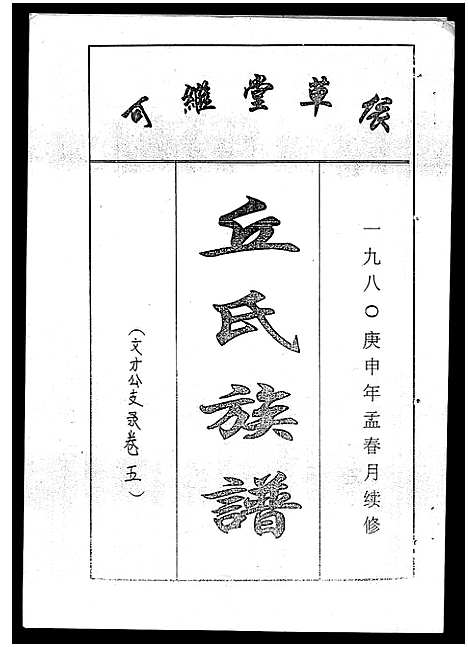 草堂維
一九八〇庚申年孟春月续修
丘氏族譜
（文才公支录卷五）